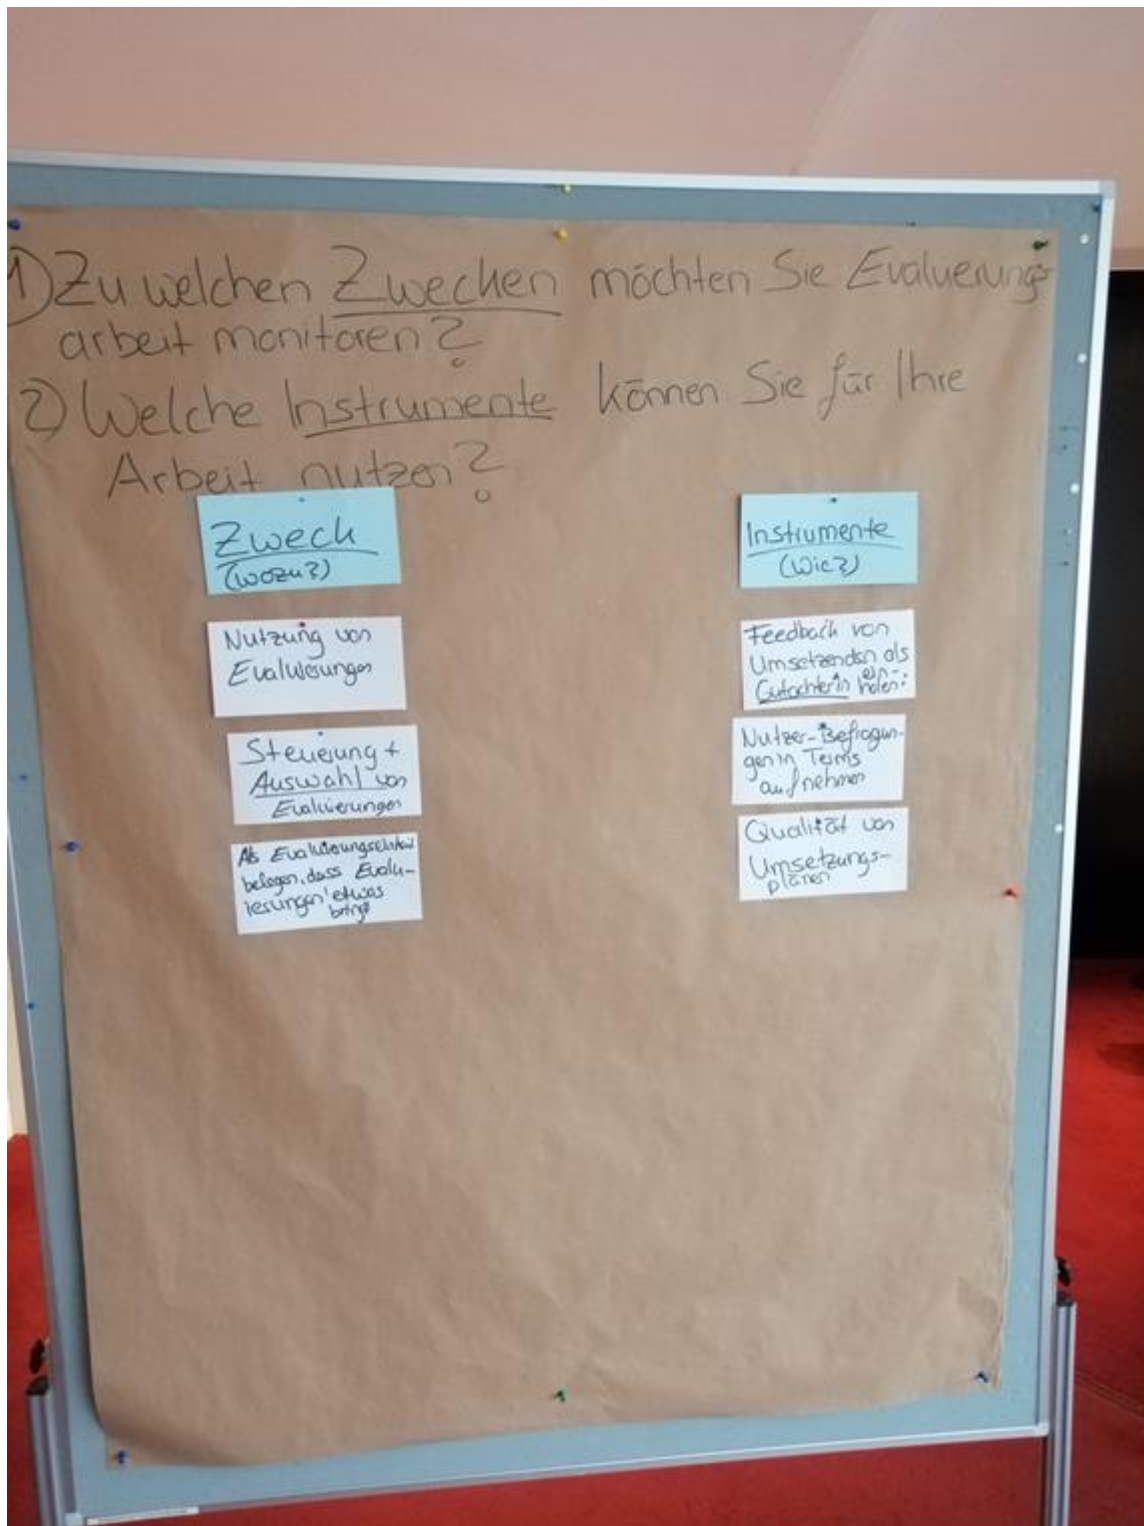 1) Zu welchen Zwecken möchten Sie Evaluierungs-
arbeit monitoren?
2) Welche Instrumente können Sie für Ihre
Arbeit nutzen?
Zweck
(wozu?)
Nutzung von
Evaluierungen
Steuerung +
Auswahl von
Evaluierungen
Als Evaluierungseinheit
belegen, dass Evalu-
ierungen etwas
bringt
Instrumente
(Wie?)
Feedback von
Umsetzenden als
GutachterIn ein-
holen
Nutzer-Befragun-
gen in Terms
aufnehmen
Qualität von
Umsetzungs-
plänen